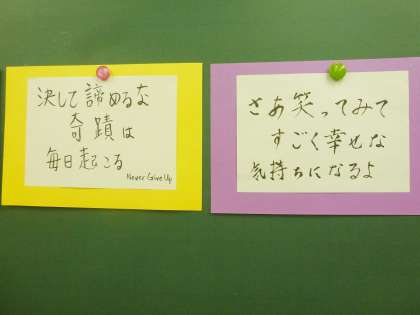 決して諦めるな
奇蹟は
毎日起こる
Never Give Up
さあ笑ってみて
すごく幸せな
気持ちになるよ